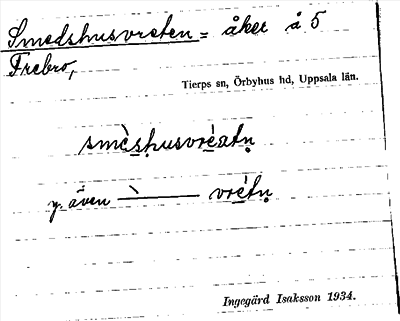 Smedshusvreten = åker å 5
Frebro,
Tierps sn, Örbyhus hd, Uppsala län.
smèṣhusvréatṇ
y. även —— vrétṇ
Ingegärd Isaksson 1934.